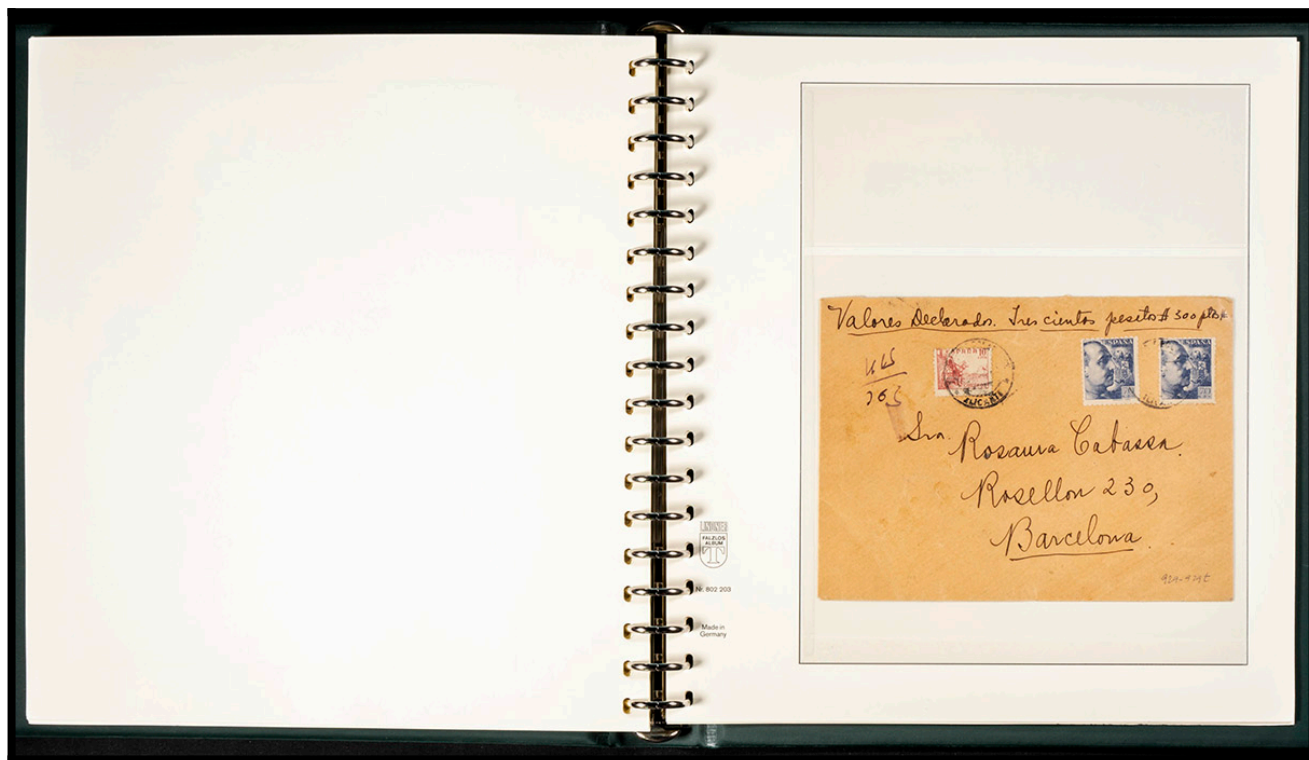 LINDNER
FALZLOS
ALBUM
T
Nr. 802 203
Made in
Germany
Valores Declarados. Tres cientos pesetas # 300 ptas #
363
ESPAÑA
ESPAÑA
ALICANTE
Sra. Rosaura Cabassa.
Rosellon 230,
Barcelona.